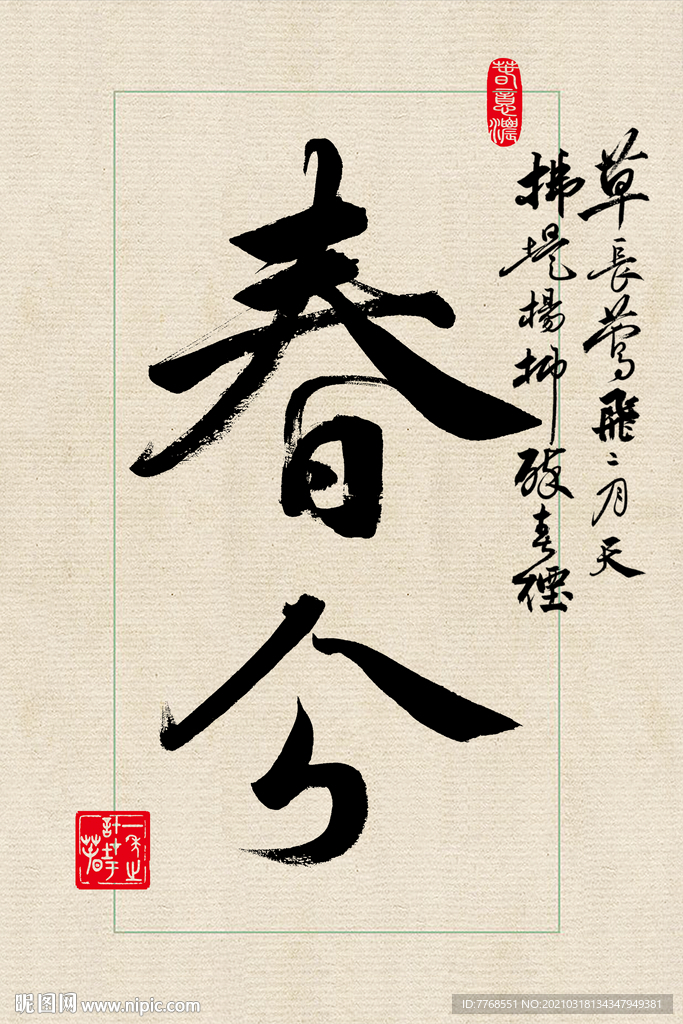 春意濃
草長莺飛二月天
拂堤楊柳醉春煙
春分
一年之
計在于
春
昵图网 www.nipic.com
ID:7768551 NO:20210318134347949381